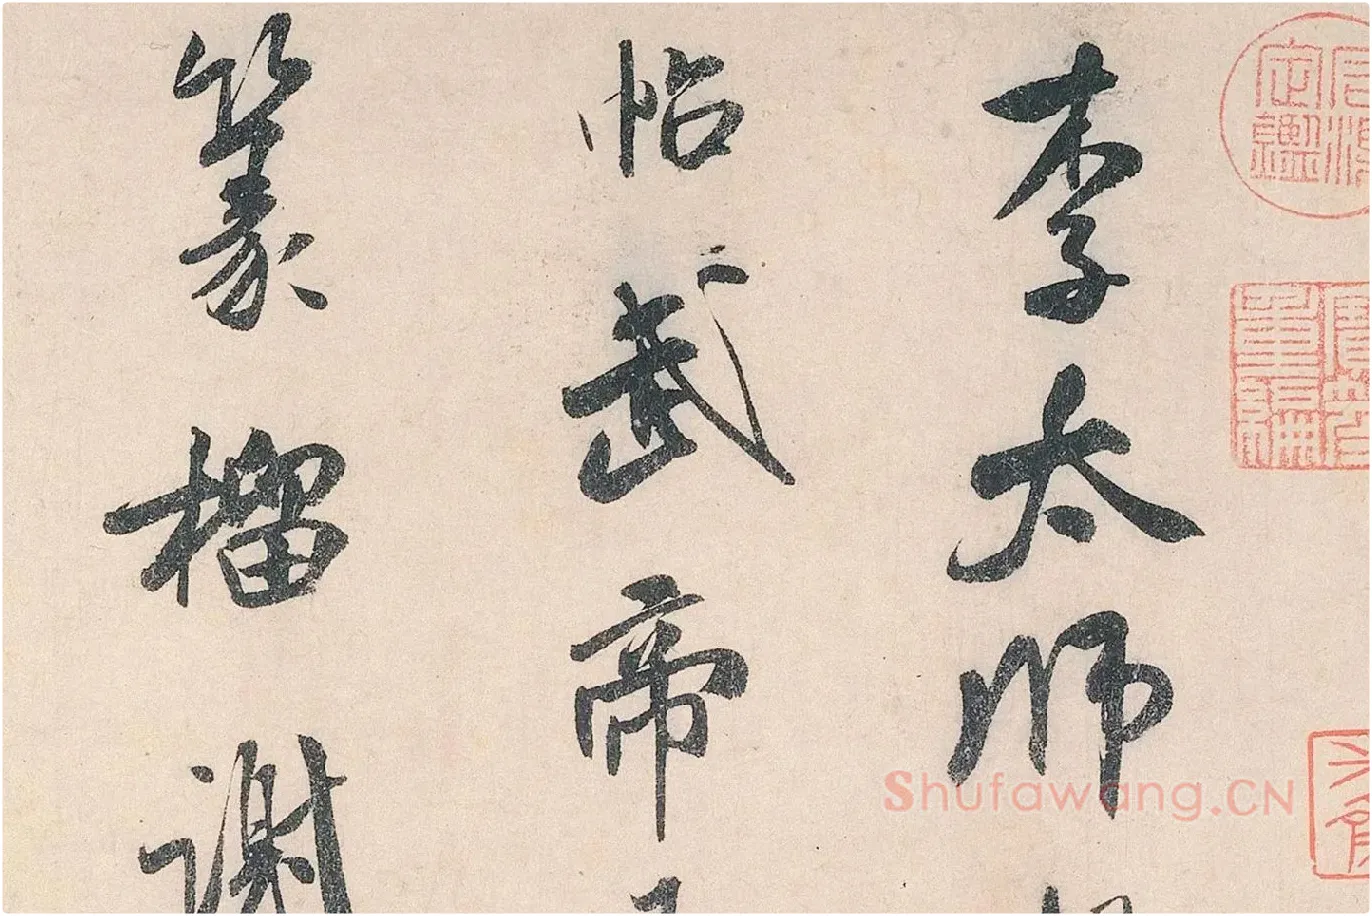 李太师
帖武帝
篆榴谢
Shufawang.CN